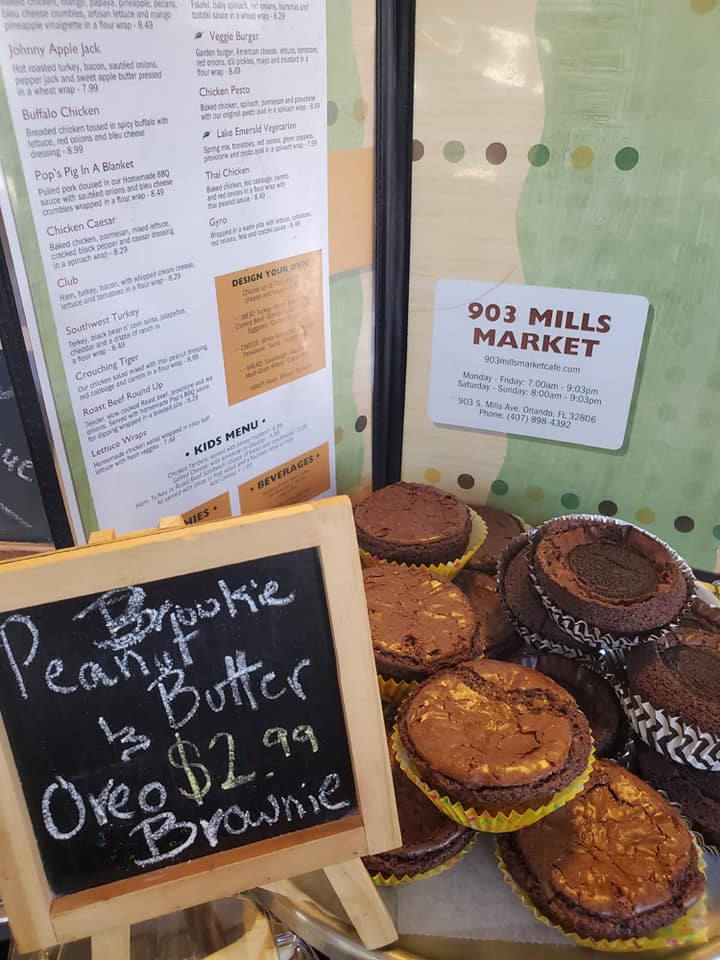 baked chicken, mango, papaya, pineapple, pecans,
bleu cheese crumbles, artisan lettuce and mango
pineapple vinaigrette in a flour wrap - 8.49
Johnny Apple Jack
Hot roasted turkey, bacon, sautéed onions,
pepper jack and sweet apple butter pressed
in a wheat wrap - 7.99
Buffalo Chicken
Breaded chicken tossed in spicy buffalo with
lettuce, red onions and bleu cheese
dressing - 8.99
Pop's Pig In A Blanket
Pulled pork doused in our Homemade BBQ
sauce with sautéed onions and bleu cheese
crumbles wrapped in a flour wrap - 8.49
Chicken Caesar
Baked chicken, parmesan, mixed lettuce,
cracked black pepper and caesar dressing
in a spinach wrap - 8.29
Club
Ham, turkey, bacon, with whipped cream cheese,
lettuce and tomatoes in a flour wrap - 8.29
Southwest Turkey
Turkey, black bean n' corn salsa, jalapeños,
cheddar and a drizzle of ranch in
a flour wrap - 8.49
Crouching Tiger
Our chicken salad mixed with thai peanut dressing,
red cabbage and carrots in a flour wrap - 8.99
Roast Beef Round Up
Tender, slow cooked Roast beef, provolone and red
onions. Served with homemade Pop's BBQ sauce
for dipping wrapped in a toasted pita - 8.29
Lettuce Wraps
Homemade chicken salad wrapped in crisp leaf
lettuce with fresh veggies - 7.49
Falafel, baby spinach, red onions, hummus and
tzatziki sauce in a wheat wrap - 8.29
Veggie Burger
Garden burger, American cheese, lettuce, tomatoes,
red onions, dill pickles, mayo and mustard in a
flour wrap - 8.49
Chicken Pesto
Baked chicken, spinach, parmesan and provolone
with our original pesto aioli in a spinach wrap - 8.49
Lake Emerald Vegetarian
Spring mix, tomatoes, red onions, green peppers,
provolone and pesto aioli in a spinach wrap - 7.99
Thai Chicken
Baked chicken, red cabbage, carrots
and red onions in a flour wrap with
thai peanut sauce - 8.49
Gyro
Wrapped in a warm pita with lettuce, tomatoes,
red onions, feta and tzatziki sauce - 8.49
DESIGN YOUR OWN
• KIDS MENU •
• BEVERAGES •
903 MILLS
MARKET
903millsmarketcafe.com
Monday - Friday: 7:00am - 9:03pm
Saturday - Sunday: 8:00am - 9:03pm
903 S. Mills Ave. Orlando, FL 32806
Phone: (407) 898-4392
Brookie
Peanut
Butter
&
$2.99
Oreo
Brownie